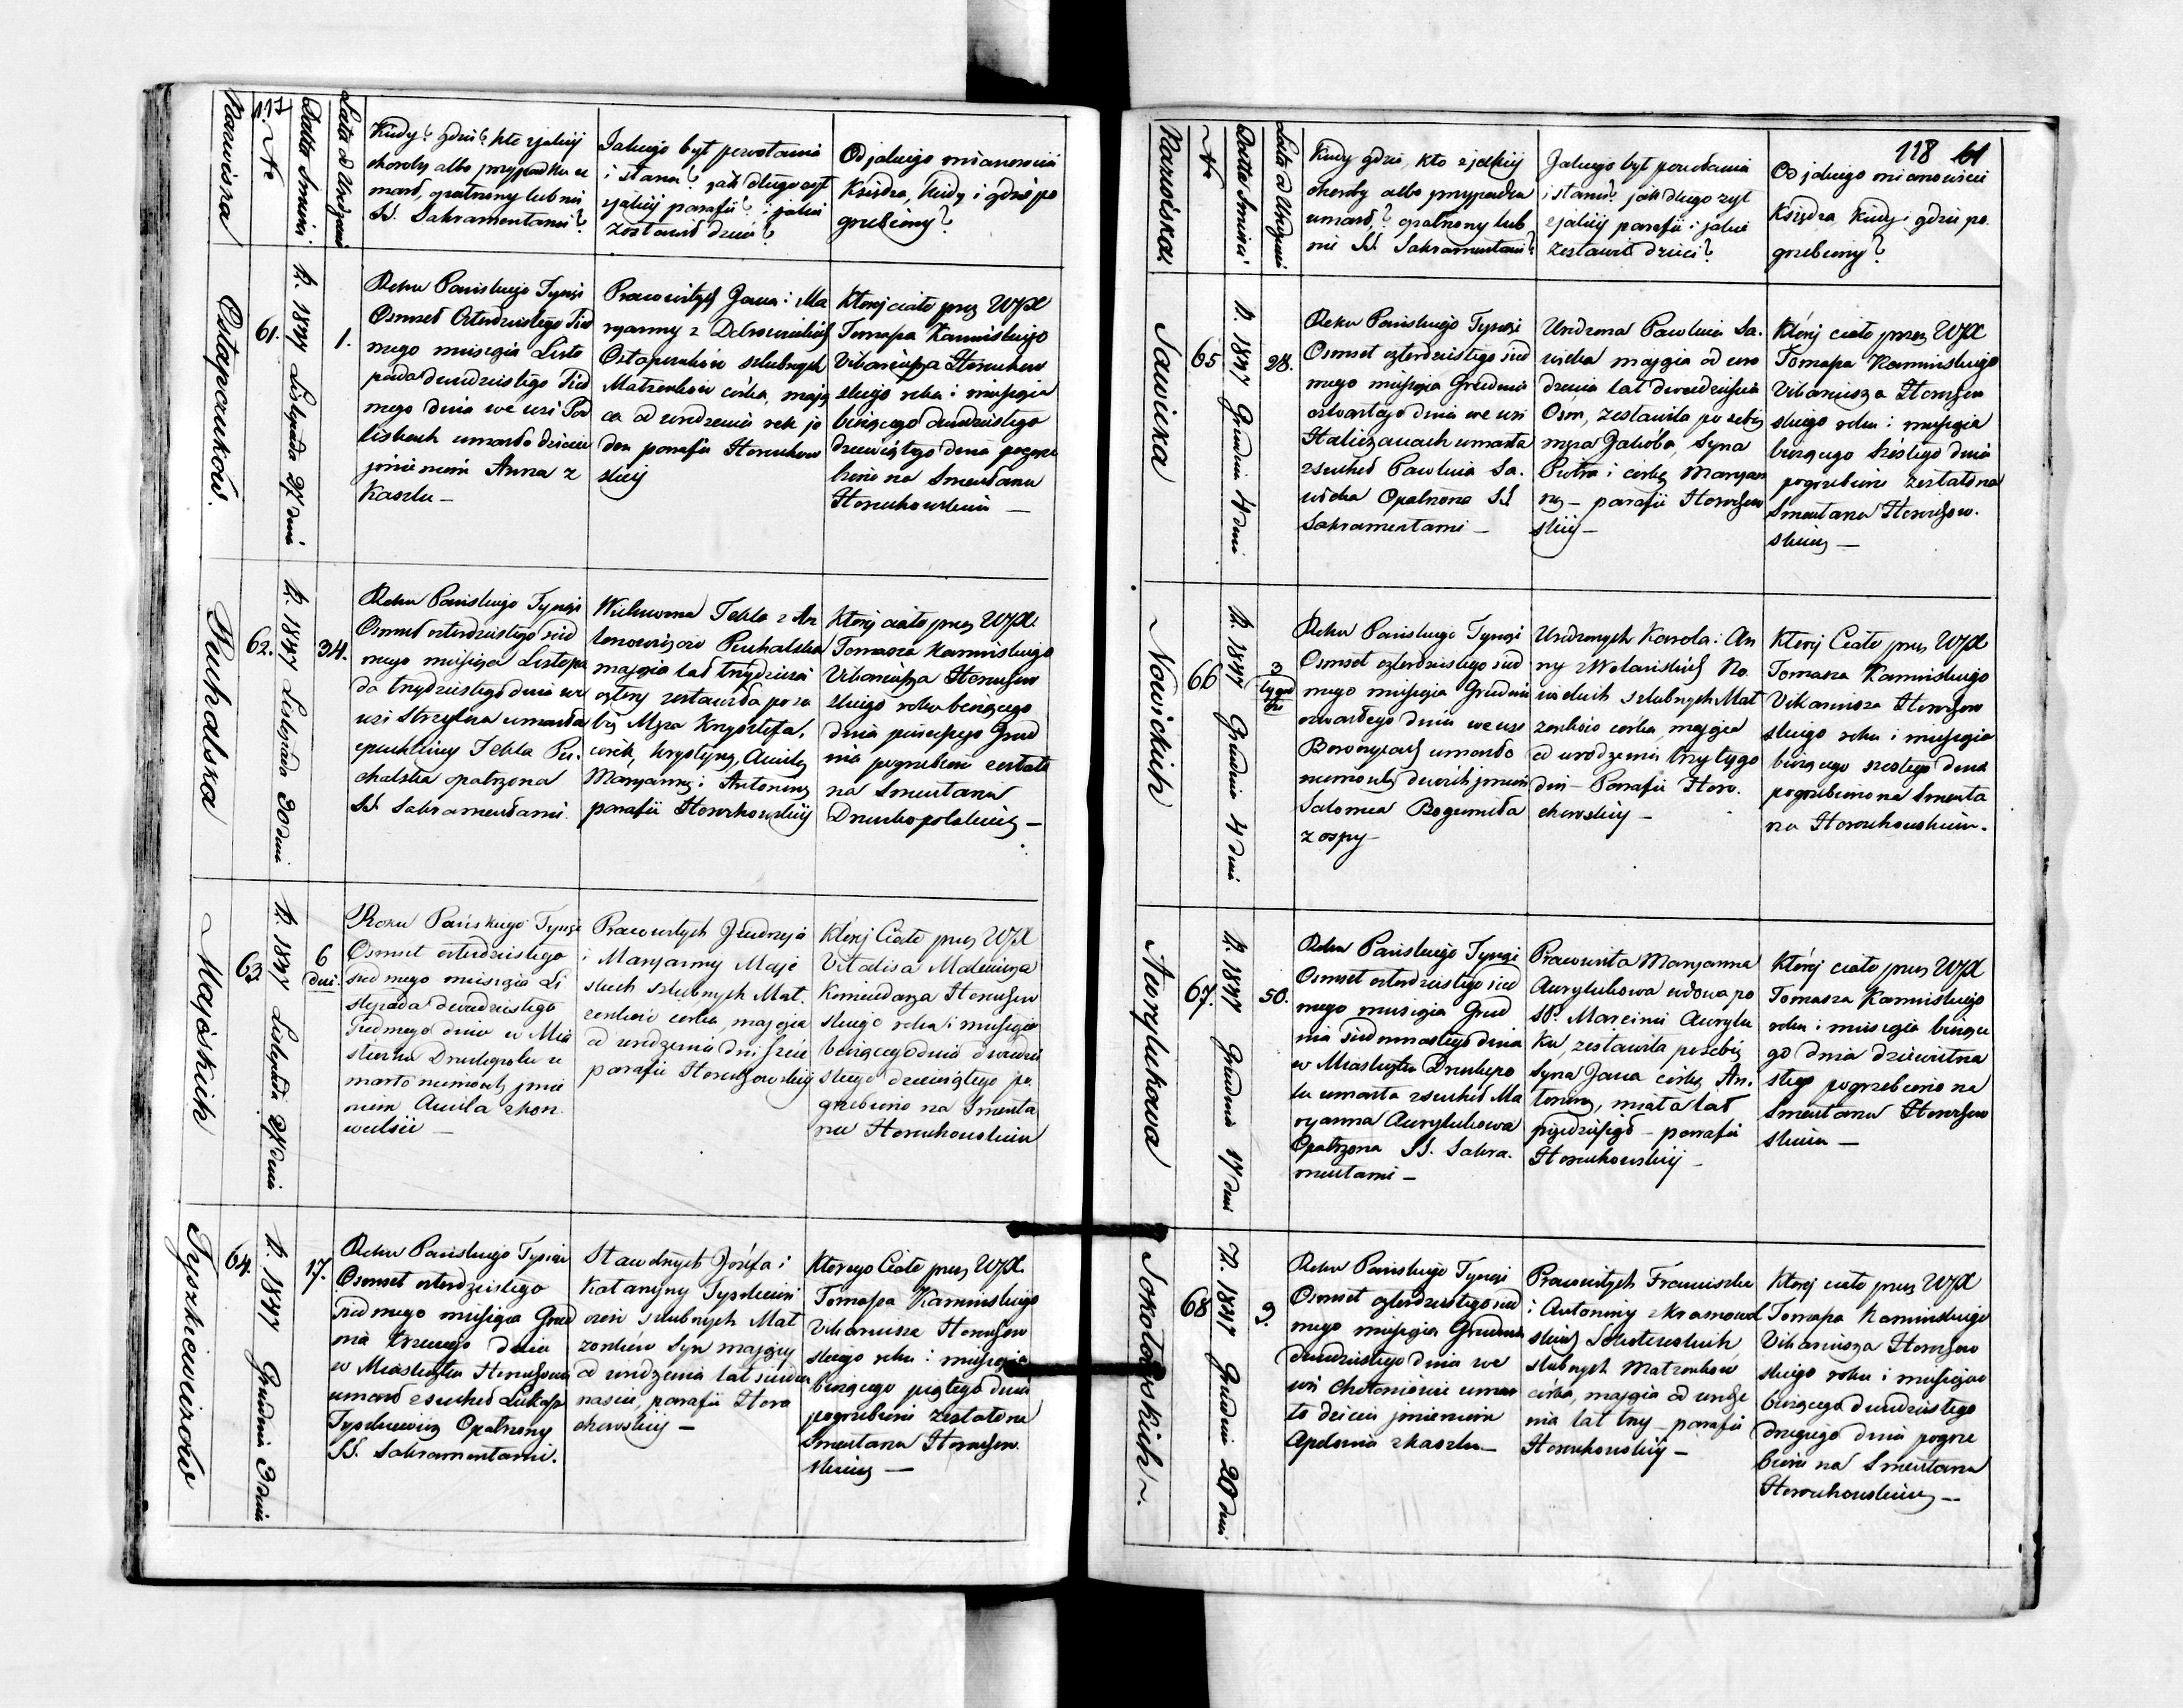 117.
Nazwiska
Nr
Datta Smierci
Lata od Urodzenia
Kiedy? gdzie? kto z jakiej
choroby albo przypadku u
marł, opatrzony lub nie
SS. Sakramentami?
Jakiego był powołania
i stanu? jak długo żył
z jakiej parafii? i jakie
zostawił dzieci?
Od jakiego mianowicie
Księdza, kiedy i gdzie po
grzebiony?
Ostapczuków.
61.
R. 1847 Listopada 27 dnia
1.
Roku Pańskiego Tysiąc
Osmset Czterdziestego Siód
mego miesiąca Listo
pada dwudziestego Siód
mego dnia we wsi Pod
liskach umarło dziecie
imieniem Anna z
Kaszlu —
Pracowitych Jana i Ma
ryanny z
Ostapczuków szlubnych
Małżonków córka, mają
ca od urodzenia rok je
den parafii Horuchow
skiej
której ciało przez WJX
Tomasza Kamińskiego
Vikariusza Horuchow
skiego roku i miesiąca
bieżącego dwudziestego
dziewiątego dnia pogrze
biono na Smentarzu
Horuchowskim —
Puchalska
62.
R. 1847 Listopada 30 dnia
34.
Roku Pańskiego Tysiąc
Osmset czterdziestego siód
mego miesiąca Listopa
da trzydziestego dnia we
wsi Strzylcza umarła
z puchliny Tekla Pu.
chalska opatrzona
SS. Sakramentami.
Tekla z An
tonowiczów Puchalska
mająca lat trzydzieści
cztery zostawiła po so
bie Męża Krzysztofa,
córki, Krystynę, Anielę
Maryannę i Antoninę
parafii Horochowskiej
której ciało przez WJX.
Tomasza Kamińskiego
Vikariusza Horuchow
skiego roku bieżącego
dnia pierwszego Grud
nia pogrzebione zostało
na Smentarzu
Druchopolskim —
Majeskich
63
R. 1847 Listopada 27 dnia
6
dni.
Roku Pańskiego Tysiąc
Osmset czterdziestego
siódmego miesiąca Li
stopada dwudziestego
Siódmego dnia w Mia
steczku Druchopolu u
marło niemowlę imie
niem Aniela z kon
wulsii —
Pracowitych Jędrzeja
i Maryanny Maje
skich szlubnych Mał.
żonków córka, mająca
od urodzenia dni sześć
parafii Horuchowskiej
której Ciało przez WJX
Vitalisa Malewicza
Komendarza Horuchow
skiego roku i miesiąca
bieżącego dnia dwudzie
stego dziewiątego po.
grzebiono na Smenta
rzu Horuchowskim
Tyszkiewiczów
64.
R. 1847 Grudnia 3 dnia
17.
Roku Pańskiego Tysiąc
Osmset czterdziestego
siódmego miesiąca Grud
nia trzeciego dnia
w Miasteczku Horuchowie
umarł z suchot Łukasz
Tyszkiewicz Opatrzony
SS. Sakramentami.
Sławetnych Józefa i
Katarzyny Tyszkiewi
czów szlubnych Mał
żonków Syn mający
od urodzenia lat siedem
naście, parafii Horo
chowskiej —
którego Ciało przez WJX.
Tomasza Kamińskiego
Vikariusza Horuchow
skiego roku i miesiąca
bieżącego piątego dnia
pogrzebione zostało na
Smentarzu Horuchow.
skim —
118 61
Nazwiska
Nr
Datta Smierci
Lata od Urodzenia
Kiedy gdzie, kto z jakiej
choroby albo przypadku
umarł,? opatrzony lub
nie SS. Sakramentami?
Jakiego był powołania
i stanu? jak długo żył
z jakiej parafii i jakie
zostawił dzieci?
Od jakiego mianowicie
Księdza, kiedy i gdzie po.
grzebiony?
Sawicka
65
R. 1847 Grudnia 4 dnia
28.
Roku Pańskiego Tysiąc
Osmset czterdziestego siód
mego miesiąca Grudnia
czwartego dnia we wsi
Haliczanach umarła
z suchot Pawlina Sa.
wicka Opatrzona SS
Sakramentami —
Urodzona Pawlina Sa.
wicka mająca od uro
dzenia lat dwadzieścia
Osm, zostawiła po sobie
męża Jakóba, Syna
Piotra i córkę Maryan
nę — parafii Horochow
skiej —
której ciało przez WJX
Tomasza Kamińskiego
Vikariusza Horochow
skiego roku i miesiąca
bieżącego Szóstego dnia
pogrzebione zostało na
Smentarzu Horochow.
skim —
Nowickich
66
R. 1847 Grudnia 4 dnia
3
tygod
nie
Roku Pańskiego Tysiąc
Osmset czterdziestego siód
mego miesiąca Grudnia
czwartego dnia we wsi
umarło
niemowle dwóch imion
Salomea Bogumiła
z ospy —
Urodzonych Karola i An
ny z Wolańskich No.
wickich szlubnych Mał
żonków córka, mająca
od urodzenia trzy tygo
dni — Parafii Horo.
chowskiej —
której Ciało przez WJX
Tomasza Kamińskiego
Vikariusza Horochow
skiego roku i miesiąca
bieżącego szóstego dnia
pogrzebiono na Smenta
rzu Horuchowskim.
Aurylukowa
67.
R. 1847 Grudnia 17 dni
50.
Roku Pańskiego Tysiąc
Osmset czterdziestego siód
mego miesiąca Grud
nia siedmnastego dnia
w Miasteczku Druchopo
lu umarła z suchot Ma
ryanna Aurylukowa
Opatrzona SS. Sakra.
mentami —
Pracowita Maryanna
Aurylukowa wdowa po
śp. Marcinie Aurylu
ku, zostawiła po sobie
Syna Jana córkę An.
toninę, miała lat
pięćdziesiąt — parafii
Horuchowskiej —
której ciało przez WJX
Tomasza Kamińskiego
roku i miesiąca bieżące
go dnia dziewiętna
stego pogrzebiono na
Smentarzu Horochow
skim —
Sokołowskich ~.
68
R. 1847 Grudnia 20 dni
3.
Roku Pańskiego Tysiąc
Osmset czterdziestego siód
mego miesiąca Grudnia
dwudziestego dnia we
wsi umar
ło dziecie imieniem
Apolonia z kaszlu —
Pracowitych Franciszka
i Antoniny
szlubnych Małżonków
córka, mająca od urodze
nia lat trzy — parafii
Horuchowskiej —
której ciało przez WJX
Tomasza Kamińskiego
Vikariusza Horochow
skiego roku i miesiąca
bieżącego dwudziestego
drugiego dnia pogrze
biono na Smentarzu
Horuchowskim —